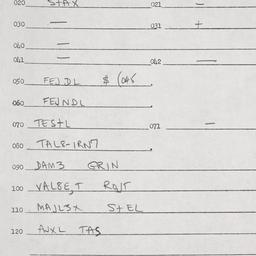 020 STAX 021 —
030 — 031 +
040 —
041 — 042 —
050 FEJDL $ (045
060 FEJNDL
070 TESTL 071 —
080 TALR-IRN7
090 DAM3 GRIN
100 VAL8E,T RO/T
110 MAJL3X STEL
120 AWXL TAS